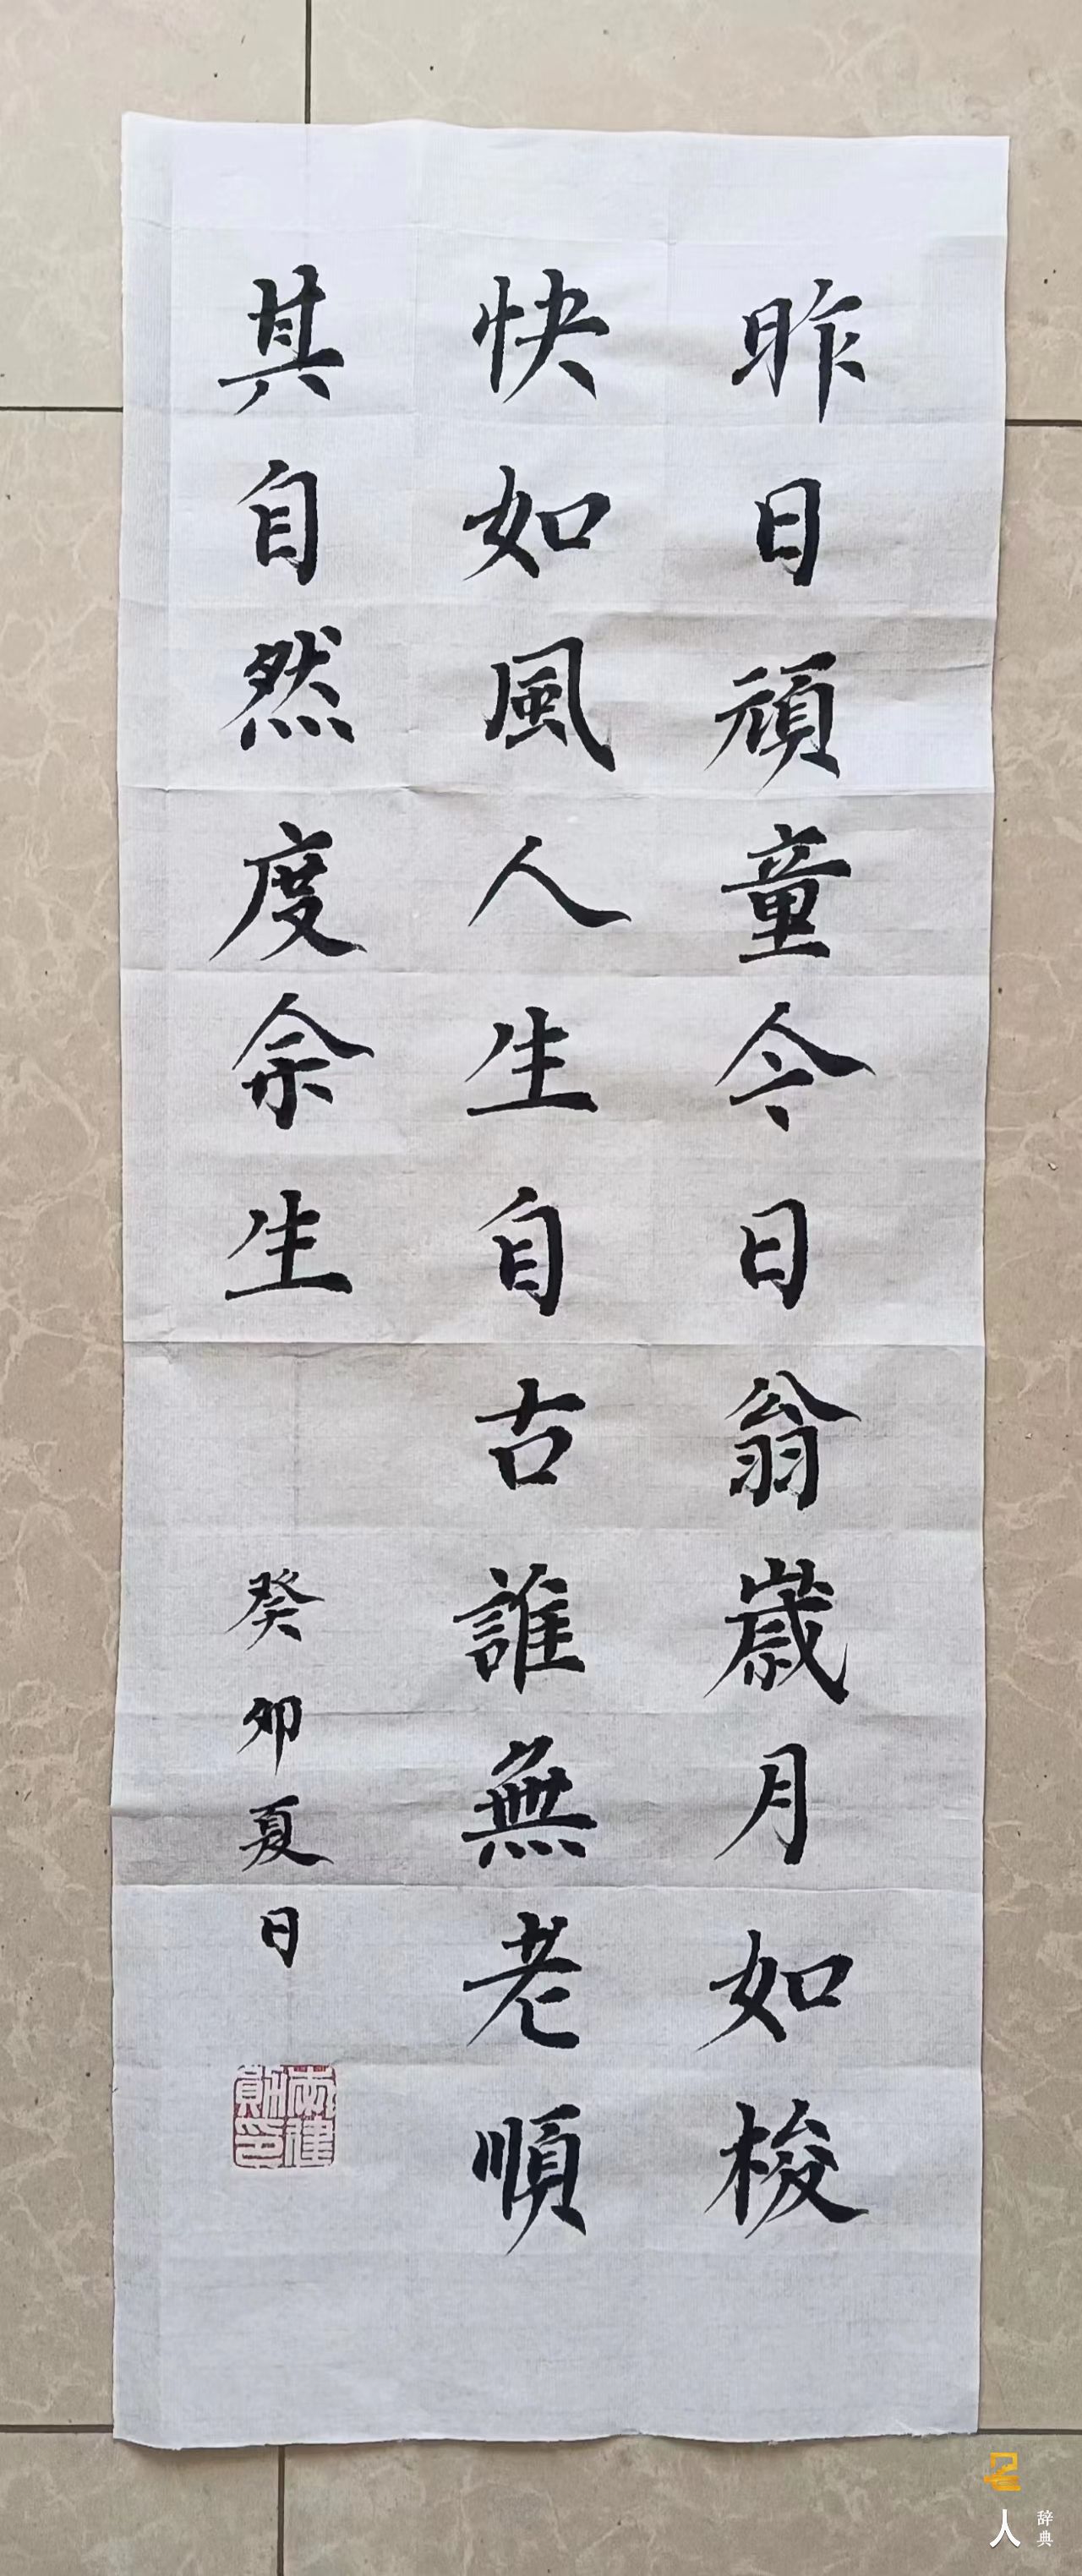 昨日頑童今日翁歲月如梭
快如風人生自古誰無老順
其自然度余生
癸卯夏日
名人辞典